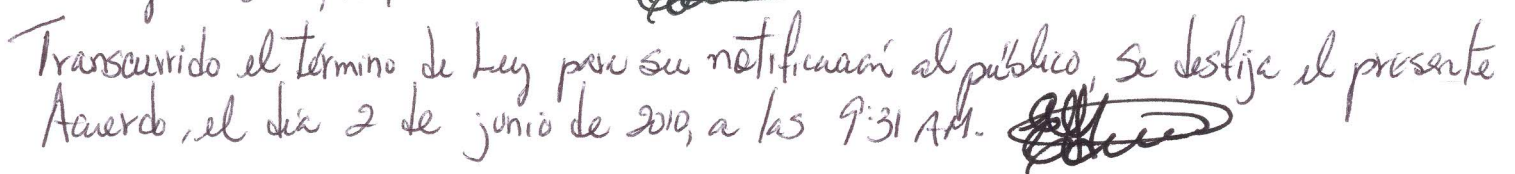 Transcurrido el término de Ley para su notificación al público, se desfija el presente
Acuerdo, el día 2 de junio de 2010, a las 9:31 AM.